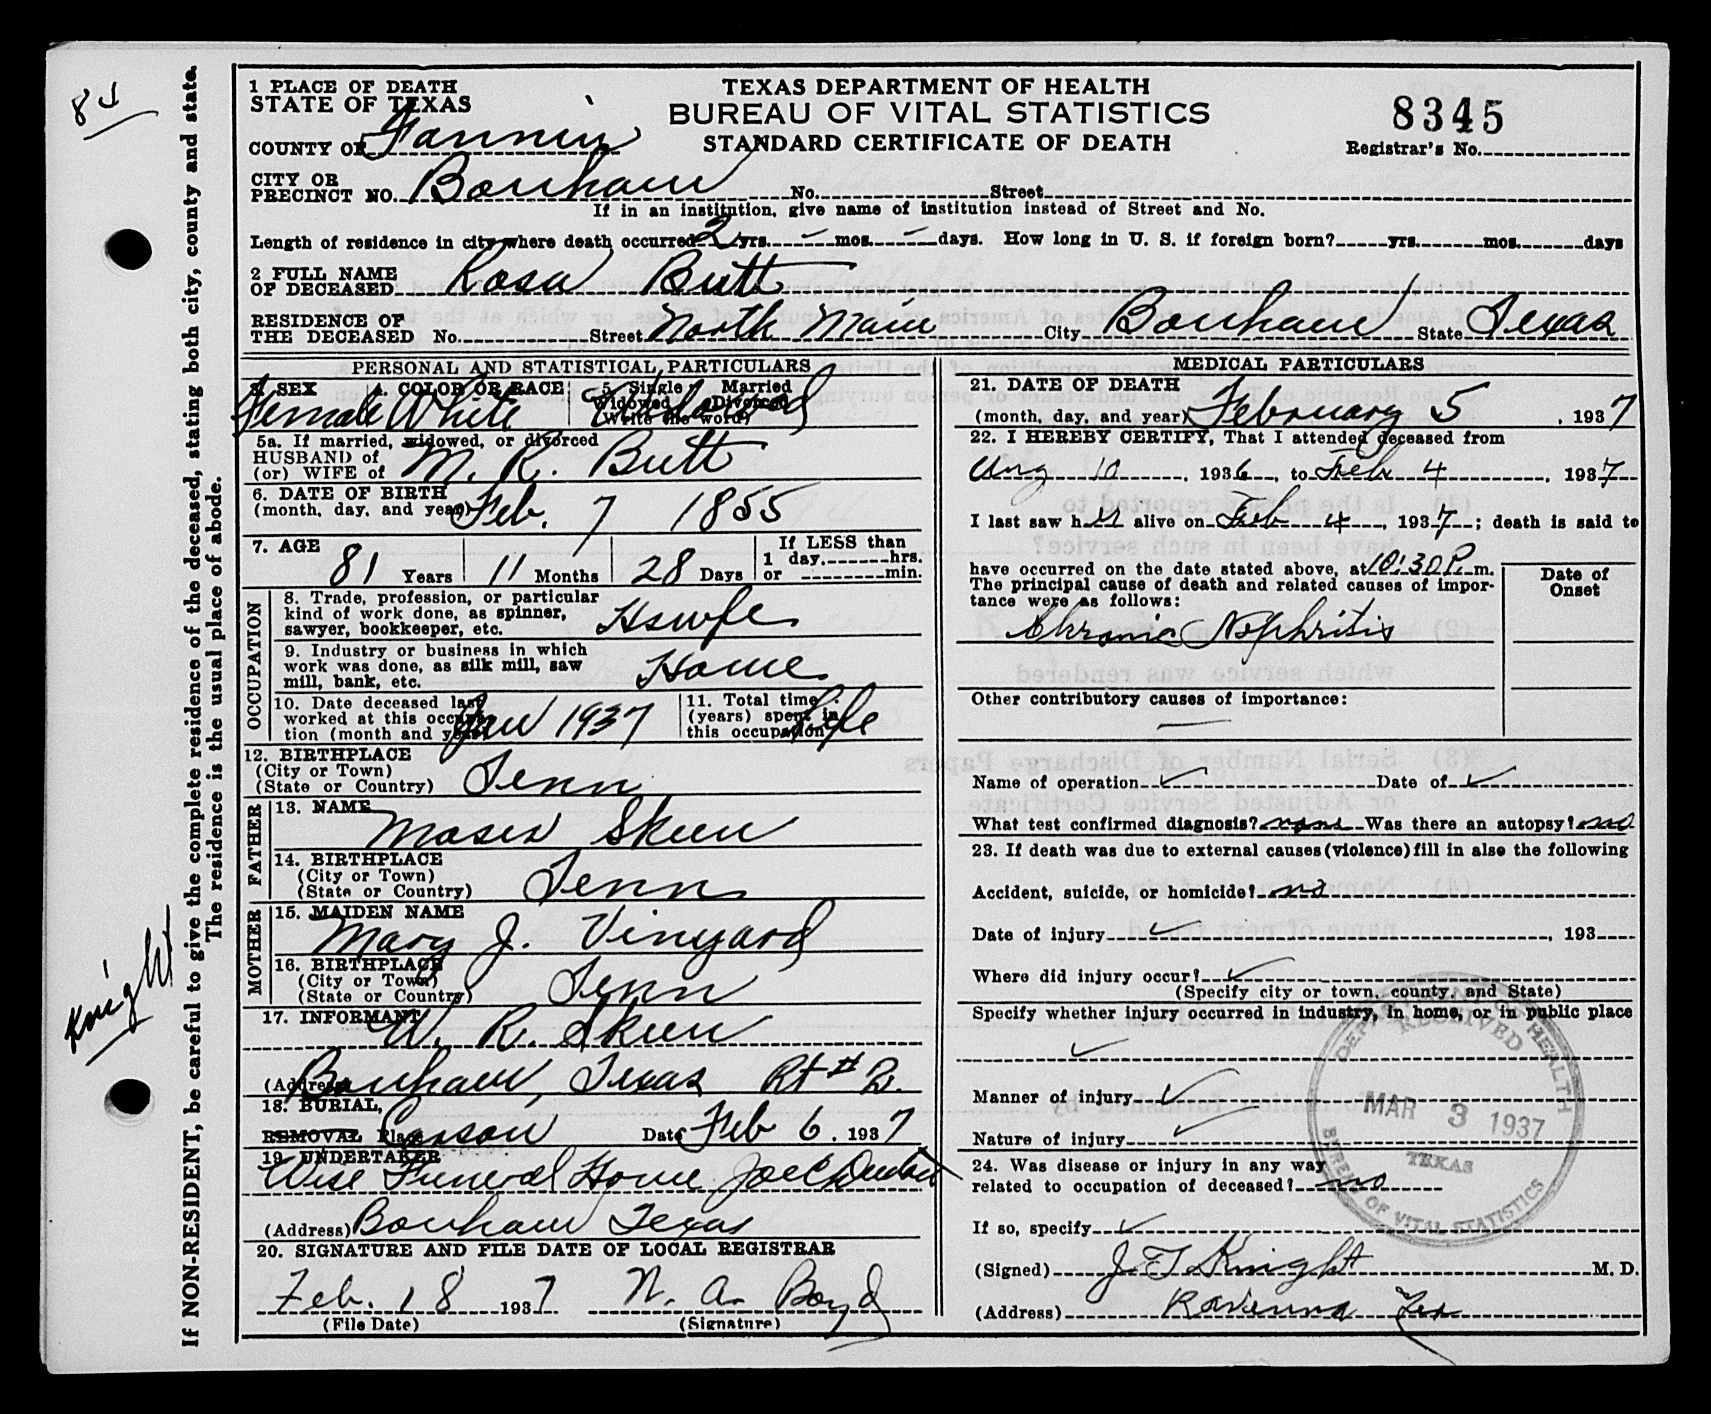 84
Knight
If NON-RESIDENT, be careful to give the complete residence of the deceased, stating both city, county and state.
The residence is the usual place of abode.
1 PLACE OF DEATH
STATE OF TEXAS
COUNTY OF Fannin
TEXAS DEPARTMENT OF HEALTH
BUREAU OF VITAL STATISTICS
STANDARD CERTIFICATE OF DEATH
8345
Registrar's No.
CITY OR
PRECINCT NO. Bonham No. Street
If in an institution, give name of institution instead of Street and No.
Length of residence in city where death occurred 2 yrs. - mos. - days. How long in U. S. if foreign born? yrs. mos. days
2 FULL NAME
OF DECEASED Rosa Butt
RESIDENCE OF
THE DECEASED No. Street North Main City Bonham State Texas
PERSONAL AND STATISTICAL PARTICULARS
3. SEX 4. COLOR OR RACE 5. Single Married
Widowed Divorced
(Write the word)
Female White Widowed
5a. If married, widowed, or divorced
HUSBAND of
(or) WIFE of M. R. Butt
6. DATE OF BIRTH
(month, day, and year) Feb. 7 1855
7. AGE
81 Years 11 Months 28 Days
If LESS than
1 day, hrs.
or min.
OCCUPATION
8. Trade, profession, or particular
kind of work done, as spinner,
sawyer, bookkeeper, etc. Hswfe
9. Industry or business in which
work was done, as silk mill, saw
mill, bank, etc. Home
10. Date deceased last
worked at this occupa-
tion (month and year) Jan 1937
11. Total time
(years) spent in
this occupation Life
12. BIRTHPLACE
(City or Town)
(State or Country) Tenn
FATHER
13. NAME
Moses Skeen
14. BIRTHPLACE
(City or Town)
(State or Country) Tenn
MOTHER
15. MAIDEN NAME
Mary J. Vinyard
16. BIRTHPLACE
(City or Town)
(State or Country) Tenn
17. INFORMANT
W. R. Skeen
(Address) Bonham, Texas Rt # 2.
18. BURIAL,
REMOVAL Place Carson Date Feb 6, 1937
19. UNDERTAKER
Wise Funeral Home
(Address) Bonham Texas
20. SIGNATURE AND FILE DATE OF LOCAL REGISTRAR
Feb. 18 1937 N. A. Boyd
(File Date) (Signature)
MEDICAL PARTICULARS
21. DATE OF DEATH
(month, day, and year) February 5, 1937
22. I HEREBY CERTIFY, That I attended deceased from
Aug 10, 1936, to Feb 4, 1937
I last saw her alive on Feb 4, 1937; death is said to
have occurred on the date stated above, at 10:30 P. m.
The principal cause of death and related causes of impor-
tance were as follows:
Date of
Onset
Chronic Nephritis
Other contributory causes of importance:
Name of operation Date of
What test confirmed diagnosis? none Was there an autopsy? no
23. If death was due to external causes (violence) fill in also the following
Accident, suicide, or homicide? no
Date of injury , 193
Where did injury occur?
(Specify city or town, county, and State)
Specify whether injury occurred in industry, in home, or in public place
Manner of injury
Nature of injury
24. Was disease or injury in any way
related to occupation of deceased? no
If so, specify
(Signed) J T Knight M. D.
(Address) Ravenna Tex
DEPARTMENT OF HEALTH
RECEIVED
MAR 3 1937
TEXAS
BUREAU OF VITAL STATISTICS